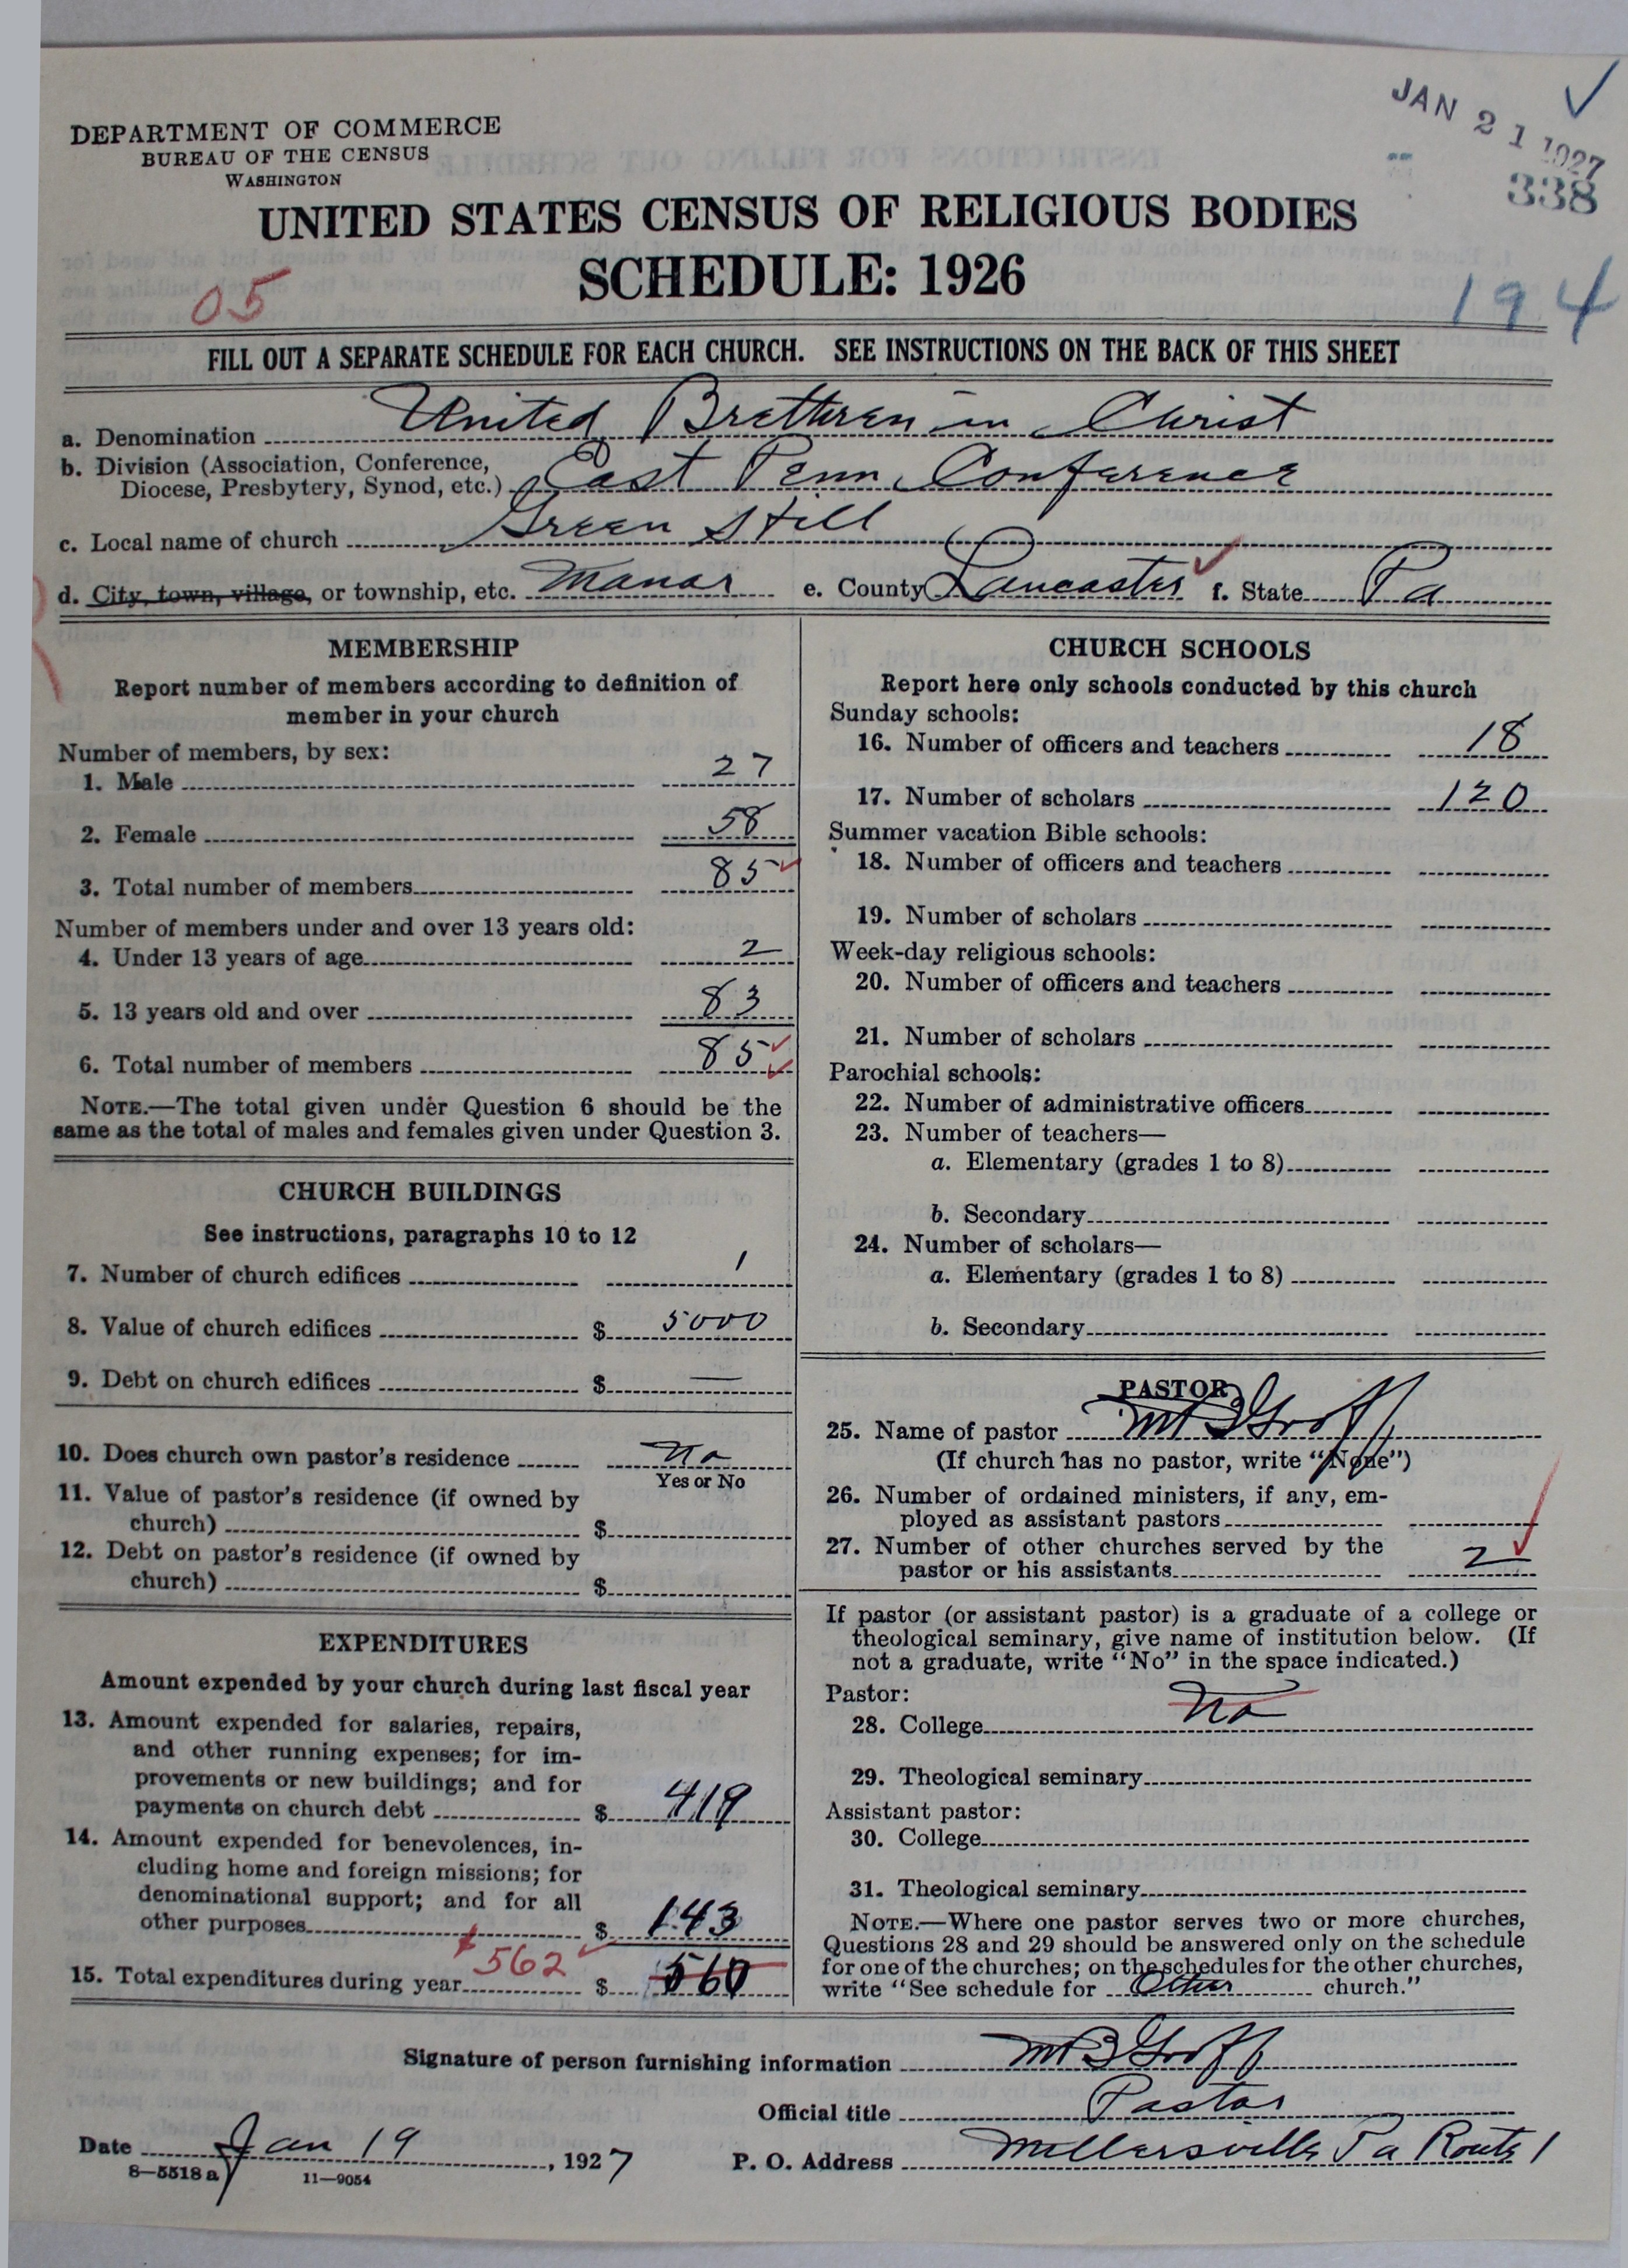 JAN 21 1927
338
DEPARTMENT OF COMMERCE
BUREAU OF THE CENSUS
WASHINGTON
UNITED STATES CENSUS OF RELIGIOUS BODIES
SCHEDULE: 1926
05
194
FILL OUT A SEPARATE SCHEDULE FOR EACH CHURCH. SEE INSTRUCTIONS ON THE BACK OF THIS SHEET
a. Denomination United Brethren in Christ
b. Division (Association, Conference,
Diocese, Presbytery, Synod, etc.) East Penn Conference
c. Local name of church Green Hill
d. City, town, village, or township, etc. Manor e. County Lancaster f. State Pa
MEMBERSHIP
Report number of members according to definition of
member in your church
Number of members, by sex:
1. Male 27
2. Female 58
3. Total number of members 85
Number of members under and over 13 years old:
4. Under 13 years of age 2
5. 13 years old and over 83
6. Total number of members 85
NOTE.—The total given under Question 6 should be the
same as the total of males and females given under Question 3.
CHURCH BUILDINGS
See instructions, paragraphs 10 to 12
7. Number of church edifices 1
8. Value of church edifices $ 5000
9. Debt on church edifices $ —
10. Does church own pastor's residence No
Yes or No
11. Value of pastor's residence (if owned by
church) $
12. Debt on pastor's residence (if owned by
church) $
EXPENDITURES
Amount expended by your church during last fiscal year
13. Amount expended for salaries, repairs,
and other running expenses; for im-
provements or new buildings; and for
payments on church debt $ 419
14. Amount expended for benevolences, in-
cluding home and foreign missions; for
denominational support; and for all
other purposes $ 143
15. Total expenditures during year 562 $ 560
CHURCH SCHOOLS
Report here only schools conducted by this church
Sunday schools:
16. Number of officers and teachers 18
17. Number of scholars 120
Summer vacation Bible schools:
18. Number of officers and teachers
19. Number of scholars
Week-day religious schools:
20. Number of officers and teachers
21. Number of scholars
Parochial schools:
22. Number of administrative officers
23. Number of teachers—
a. Elementary (grades 1 to 8)
b. Secondary
24. Number of scholars—
a. Elementary (grades 1 to 8)
b. Secondary
PASTOR
25. Name of pastor M B Groff
(If church has no pastor, write "None")
26. Number of ordained ministers, if any, em-
ployed as assistant pastors
27. Number of other churches served by the
pastor or his assistants 2
If pastor (or assistant pastor) is a graduate of a college or
theological seminary, give name of institution below. (If
not a graduate, write "No" in the space indicated.)
Pastor:
28. College No
29. Theological seminary
Assistant pastor:
30. College
31. Theological seminary
NOTE.—Where one pastor serves two or more churches,
Questions 28 and 29 should be answered only on the schedule
for one of the churches; on the schedules for the other churches,
write "See schedule for Other church."
Signature of person furnishing information M B Groff
Official title Pastor
Date Jan 19, 1927 P. O. Address Millersville Pa Route 1
8—5518 a 11—9054